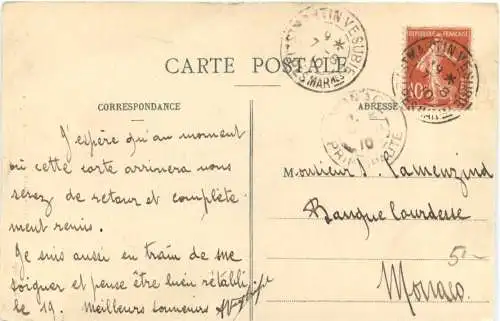 CARTE POSTALE
CORRESPONDANCE
ADRESSE
J'espère qu'au moment
où cette carte arrivera vous
serez de retour et complète
ment remis.
Je suis aussi en train de me
soigner et pense être bien rétabli
le 19. Meilleurs souvenirs
Monsieur Camenzind
Banque
Monaco
5-
MARTIN VESUBIE
9
MARMES
REPUBLIQUE FRANÇAISE
10
MARTIN VESUBIE
PRINCIPAUTE
10